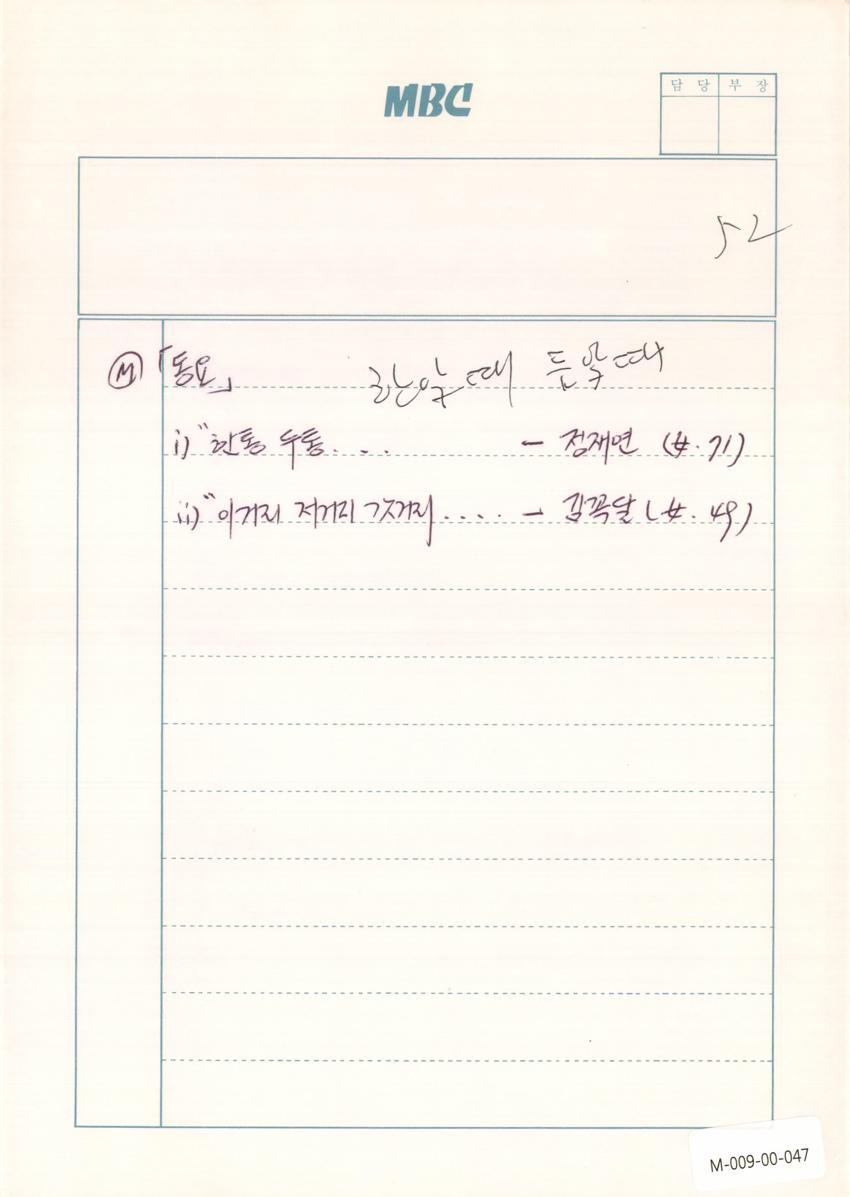 MBC
담 당 부 장
52
Ⓜ 「동요」 란알때 듬알따
i) "한통 두통. . . — 정재연 (女. 71)
ii) "이거리 저거리 각거리. . . . — 김꼭달 (女. 49)
M-009-00-047